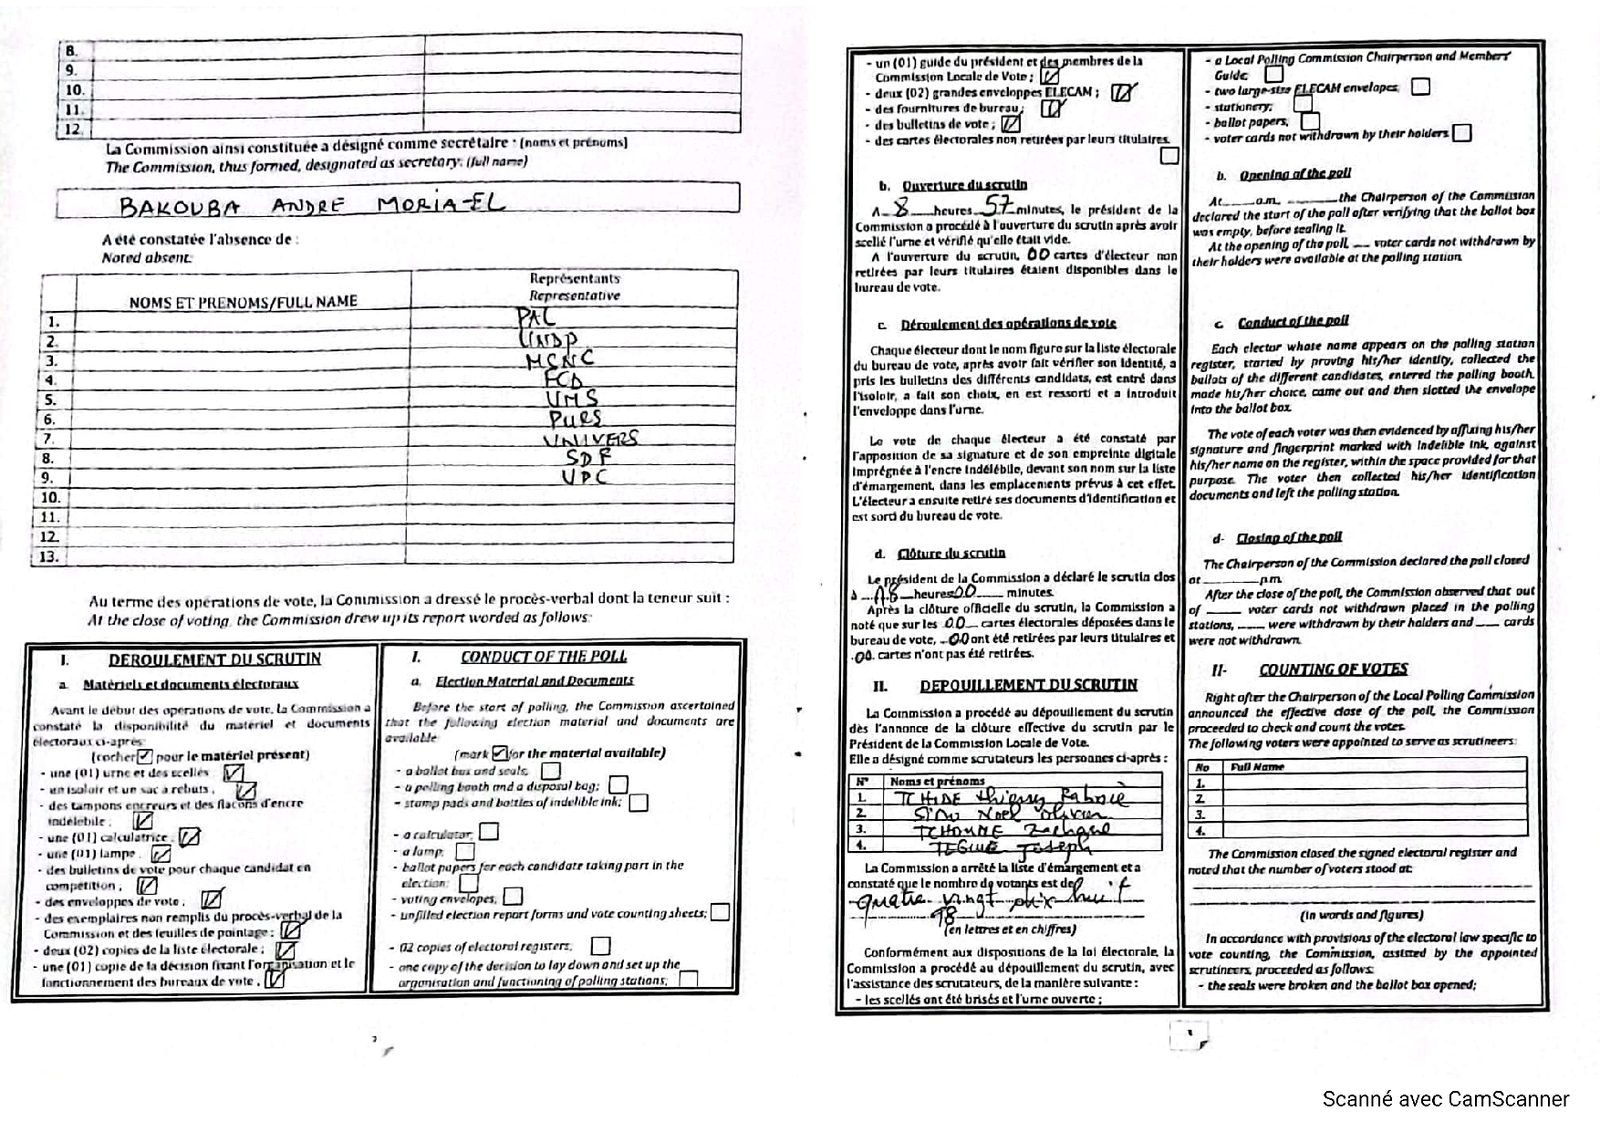 8.
9.
10.
11.
12.
La Commission ainsi constituée a désigné comme secrétaire : (noms et prénoms)
The Commission, thus formed, designated as secretary: (full name)
BAKOUBA ANDRE MORIA-EL
A été constatée l'absence de :
Noted absent:
NOMS ET PRENOMS/FULL NAME
Représentants
Representative
1. PAL
2. UNDP
3. MCNC
4. FCD
5. UMS
6. PURS
7. UNIVERS
8. SDF
9. UPC
10.
11.
12.
13.
Au terme des opérations de vote, la Commission a dressé le procès-verbal dont la teneur suit :
At the close of voting, the Commission drew up its report worded as follows:
I. DEROULEMENT DU SCRUTIN
a. Matériels et documents électoraux
Avant le début des operations de vote, la Commission a
constaté la disponibilité du matériel et documents
électoraux ci-après:
(cocher ✓ pour le matériel présent)
- une (01) urne et des scellés ;
- un isoloir et un sac à rebuts ;
- des tampons encreurs et des flacons d'encre
indélébile ;
- une (01) calculatrice ;
- une (01) lampe ;
- des bulletins de vote pour chaque candidat en
compétition ;
- des enveloppes de vote ;
- des exemplaires non remplis du procès-verbal de la
Commission et des feuilles de pointage ;
- deux (02) copies de la liste électorale ;
- une (01) copie de la décision fixant l'organisation et le
fonctionnement des bureaux de vote ;
I. CONDUCT OF THE POLL
a. Election Material and Documents
Before the start of polling, the Commission ascertained
that the following election material and documents are
available
(mark ✓ for the material available)
- a ballot box and seals;
- a polling booth and a disposal bag;
- stamp pads and bottles of indelible ink;
- a calculator;
- a lamp;
- ballot papers for each candidate taking part in the
election;
- voting envelopes;
- unfilled election report forms and vote counting sheets;
- 02 copies of electoral registers;
- one copy of the decision to lay down and set up the
organisation and functioning of polling stations;
- un (01) guide du président et des membres de la
Commission Locale de Vote ;
- deux (02) grandes enveloppes ELECAM ;
- des fournitures de bureau;
- des bulletins de vote ;
- des cartes électorales non retirées par leurs titulaires
b. Ouverture du scrutin
A 8 heures 57 minutes, le président de la
Commission a procédé à l'ouverture du scrutin après avoir
scellé l'urne et vérifié qu'elle était vide.
A l'ouverture du scrutin, 00 cartes d'électeur non
retirées par leurs titulaires étaient disponibles dans le
bureau de vote.
c. Déroulement des opérations de vote
Chaque électeur dont le nom figure sur la liste électorale
du bureau de vote, après avoir fait vérifier son identité, a
pris les bulletins des différents candidats, est entré dans
l'isoloir, a fait son choix, en est ressorti et a introduit
l'enveloppe dans l'urne.
Le vote de chaque électeur a été constaté par
l'apposition de sa signature et de son empreinte digitale
imprégnée à l'encre indélébile, devant son nom sur la liste
d'émargement, dans les emplacements prévus à cet effet.
L'électeur a ensuite retiré ses documents d'identification et
est sorti du bureau de vote.
d. Clôture du scrutin
Le président de la Commission a déclaré le scrutin clos
à 18 heures 00 minutes.
Après la clôture officielle du scrutin, la Commission a
noté que sur les 00 cartes électorales déposées dans le
bureau de vote, 00 ont été retirées par leurs titulaires et
00 cartes n'ont pas été retirées.
II. DEPOUILLEMENT DU SCRUTIN
La Commission a procédé au dépouillement du scrutin
dès l'annonce de la clôture effective du scrutin par le
Président de la Commission Locale de Vote.
Elle a désigné comme scrutateurs les personnes ci-après :
N° Noms et prénoms
1. TCHIDE Thierry
2. Noel Olivier
3.
4. TEGUE Joseph
La Commission a arrêté la liste d'émargement et a
constaté que le nombre de votants est de
quatre vingt dix huit
98
(en lettres et en chiffres)
Conformément aux dispositions de la loi électorale, la
Commission a procédé au dépouillement du scrutin, avec
l'assistance des scrutateurs, de la manière suivante :
- les scellés ont été brisés et l'urne ouverte ;
- a Local Polling Commission Chairperson and Members'
Guide;
- two large-size ELECAM envelopes;
- stationery;
- ballot papers;
- voter cards not withdrawn by their holders
b. Opening of the poll
At______a.m, ________the Chairperson of the Commission
declared the start of the poll after verifying that the ballot box
was empty, before sealing it.
At the opening of the poll, ___ voter cards not withdrawn by
their holders were available at the polling station.
c. Conduct of the poll
Each elector whose name appears on the polling station
register, started by proving his/her identity, collected the
ballots of the different candidates, entered the polling booth,
made his/her choice, came out and then slotted the envelope
into the ballot box.
The vote of each voter was then evidenced by affixing his/her
signature and fingerprint marked with indelible ink, against
his/her name on the register, within the space provided for that
purpose. The voter then collected his/her identification
documents and left the polling station.
d- Closing of the poll
The Chairperson of the Commission declared the poll closed
at _________p.m.
After the close of the poll, the Commission observed that out
of _____ voter cards not withdrawn placed in the polling
stations, ____ were withdrawn by their holders and ____ cards
were not withdrawn.
II- COUNTING OF VOTES
Right after the Chairperson of the Local Polling Commission
announced the effective close of the poll, the Commission
proceeded to check and count the votes.
The following voters were appointed to serve as scrutineers:
No Full Name
1.
2.
3.
4.
The Commission closed the signed electoral register and
noted that the number of voters stood at:
(in words and figures)
In accordance with provisions of the electoral law specific to
vote counting, the Commission, assisted by the appointed
scrutineers, proceeded as follows:
- the seals were broken and the ballot box opened;
Scanné avec CamScanner